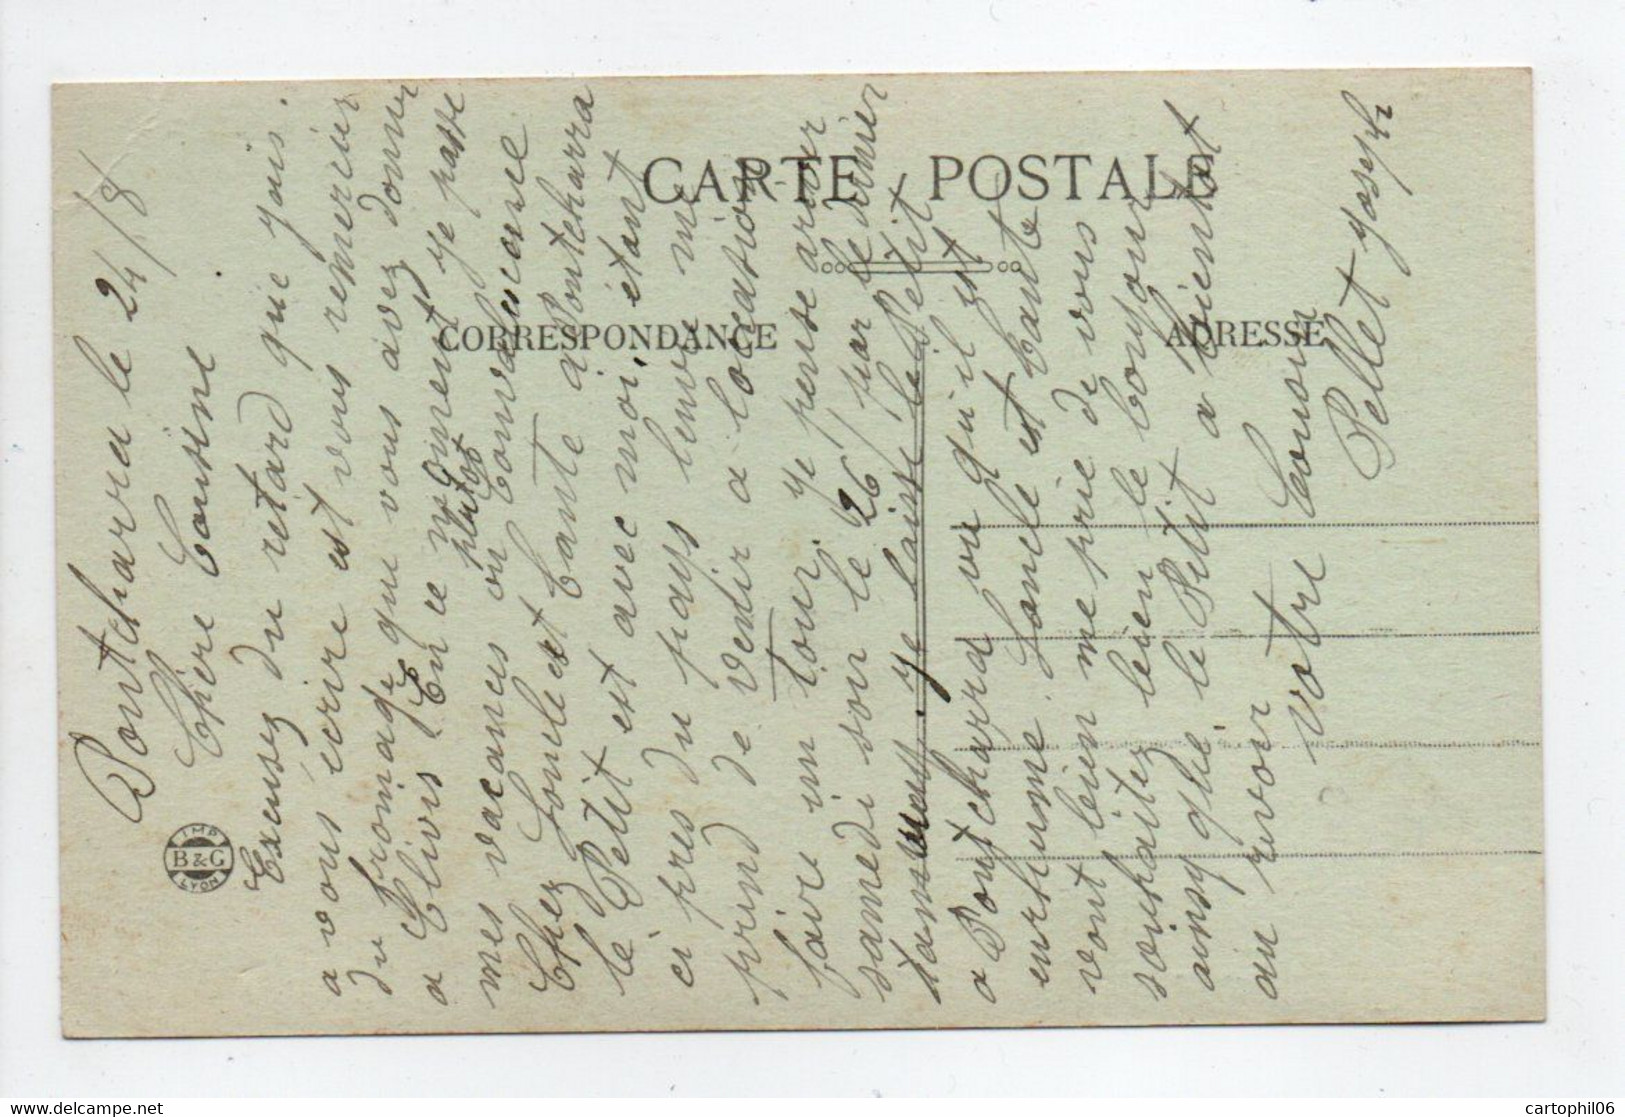 CARTE POSTALE
CORRESPONDANCE
ADRESSE
IMP
B & G
LYON
Pontcharra le 24/8
Chère Cousine
Excusez du retard que jais
a vous écrire est vous remercier
du fromage que vous avez donner
a Clivis. En ce moment je passe
plutot
mes vacances ou convalescence
Chez Loncle et Tante a Pontcharra
le Petit est avec moi, étant
ci pres du pays lenvie me
prend de venir a loccation
faire un tour, je pense ariver
samedi soir le 26 par le dernier
je laisse le Petit
a Pontcharra vu qu il est
enrhumé. Loncle et tante
vont bien me prie de vous
souhaitez bien le bonjour
ainsy que le Petit a bientot
au revoir
Votre Cousin
Pellet Joseph
cartophil06